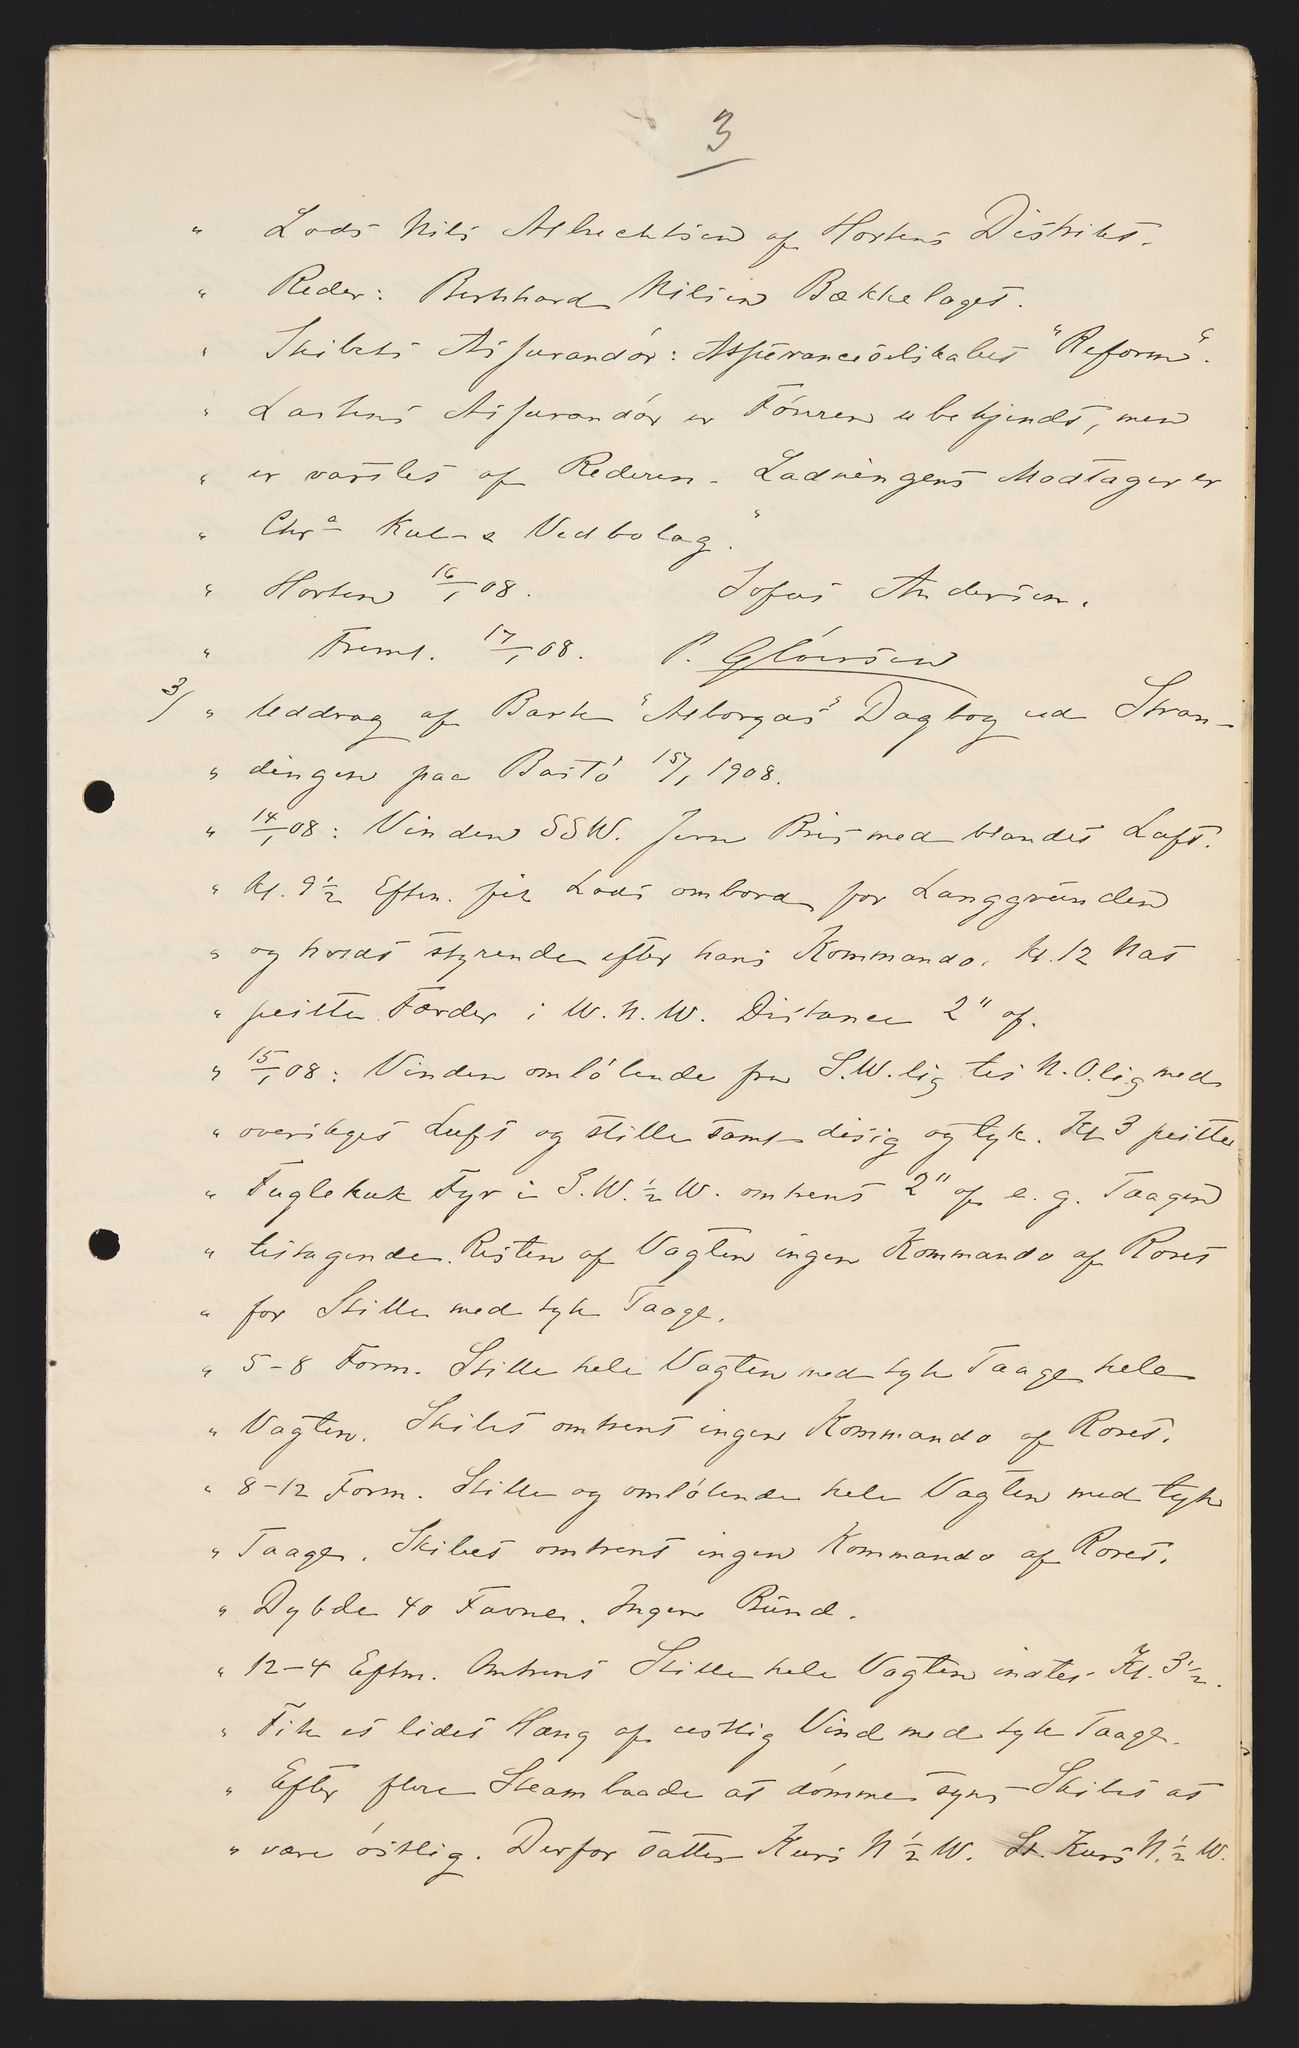 3
" Lods Nils Albrechtsen af Hortens Distrikt.
" Reder: Bernhard Nilsen Bækkelaget.
" Skibets Assurandör: Assuranceselskabet "Reform".
" Lastens Assurandör er Föreren ubekjendt, men
" er varslet af Rederen. Ladningens Modtager er
" Chra Kul- & Vedbolag."
" Horten 16/1 08. Sofus Andersen.
" Freml. 17/1 08. P. Glöersen
3/ " Uddrag af Bark "Alborgas" Dagbog ved Stran-
" dingen paa Bastö 15/1 1908.
" 14/1 08: Vinden SSW. Jevn Bris med blandet Luft.
" Kl. 9 1/2 Eftm. fik Lods ombord for Langgrunden
" og holdt styrende efter hans Kommando. Kl. 12 Nat
" peilte Færder i W.N.W. Distance 2" af.
" 15/1 08: Vinden omlöbende fra S.W.lig til N.O.lig med
" overskyet Luft og stille samt disig og tyk. Kl 3 peilte
" Fuglehuk Fyr i S.W. 1/2 W. omtrent 2" af e. g. Taagen
" tiltagende. Resten af Vagten ingen Kommando af Roret
" for Stille med tyk Taage.
" 5-8 Form. Stille hele Vagten med tyk Taage hele
" Vagten. Skibet omtrent ingen Kommando af Roret.
" 8-12 Form. Stille og omlöbende hele Vagten med tyk
" Taage. Skibet omtrent ingen Kommando af Roret.
" Dybde 40 Favne. Ingen Bund.
" 12-4 Eftm. Omtrent Stille hele Vagten indtil Kl. 3 1/2.
" Fik et lidet Hæng af vestlig Vind med tyk Taage.
" Efter flere Steambaade at dömme syns Skibet at
" være östlig. Derfor sattes Kurs N 1/2 W. St. Kurs N. 1/2 W.